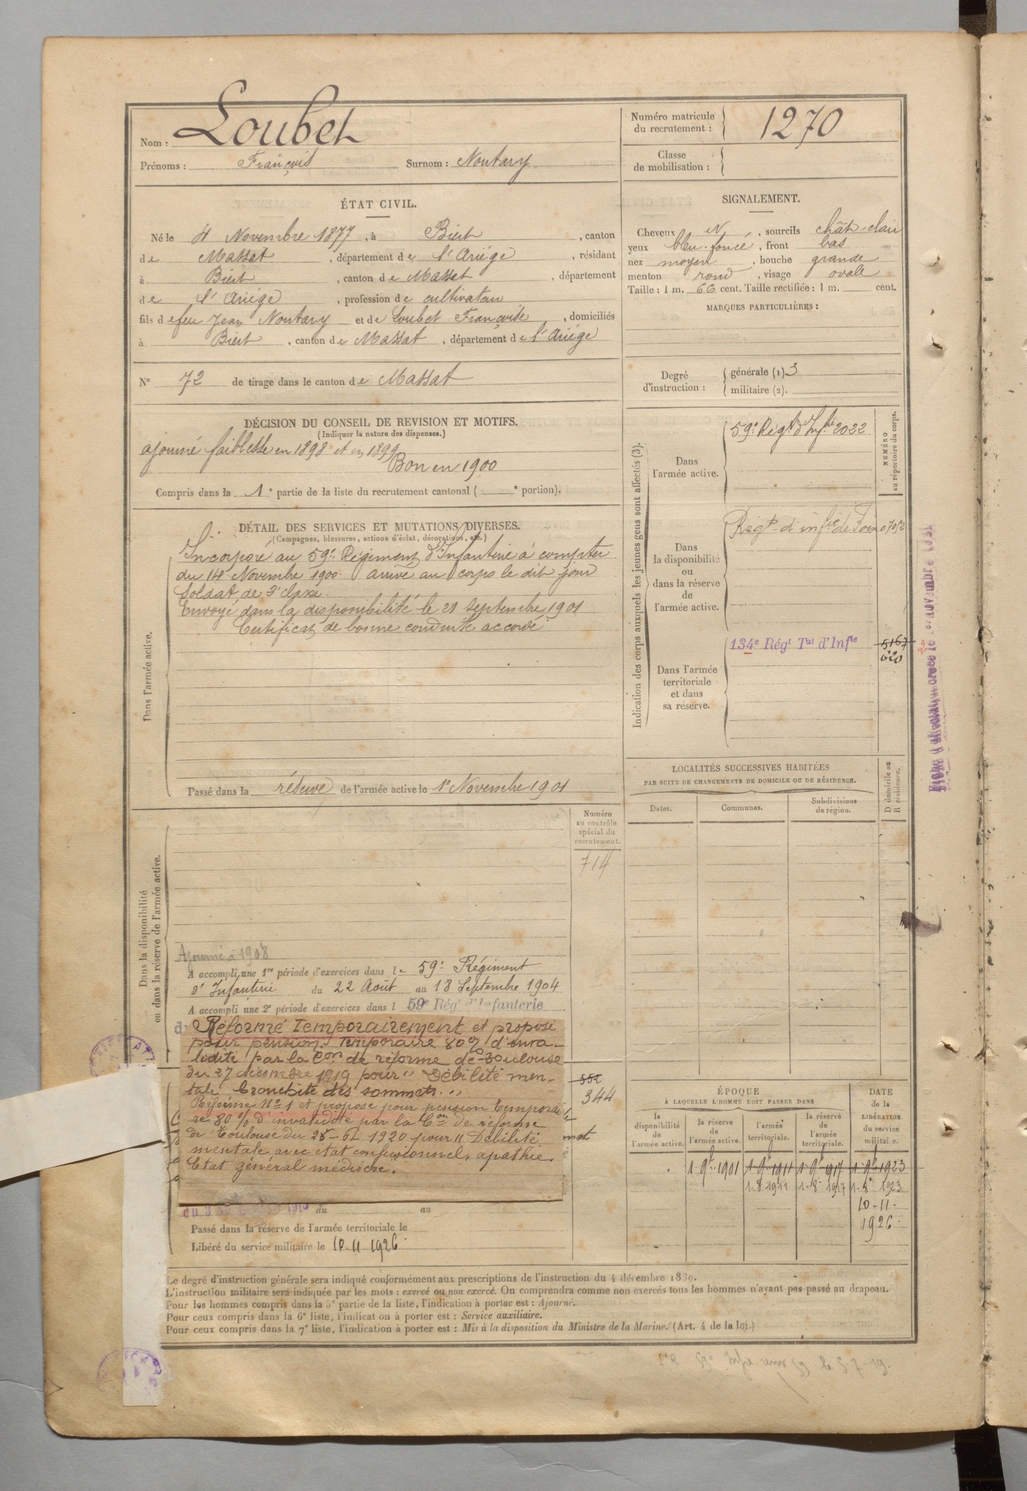 Nom : Loubet
Prénoms : François Surnom : Noutary
Numéro matricule du recrutement : 1270
Classe de mobilisation :
ÉTAT CIVIL.
Né le 4 Novembre 1877, à Biert, canton
de Massat, département de l'Ariége, résidant
à Biert, canton de Massat, département
de l'Ariége, profession de cultivateur
fils de feu Jean Noutary et de Loubet Françoise, domiciliés
à Biert, canton de Massat, département de l'Ariége
N° 72 de tirage dans le canton de Massat
SIGNALEMENT.
Cheveux N, sourcils chât-clair
yeux bleu-foncé, front bas
nez moyen, bouche grande
menton rond, visage ovale
Taille : 1 m. 66 cent. Taille rectifiée : 1 m. cent.
MARQUES PARTICULIÈRES :
Degré d'instruction : générale (1) 3
militaire (2).
DÉCISION DU CONSEIL DE REVISION ET MOTIFS.
(Indiquer la nature des dispenses.)
ajourné faiblesse en 1898 et en 1899
Bon en 1900
Compris dans la 1e partie de la liste du recrutement cantonal ( e portion).
DÉTAIL DES SERVICES ET MUTATIONS DIVERSES.
(Campagnes, blessures, actions d'éclat, décorations, etc.)
Dans l'armée active.
Incorporé au 59e Régiment d'Infanterie à compter
du 14 Novembre 1900. arrivé au corps le dit jour
Soldat de 2e classe.
Envoyé dans la disponibilité le 21 Septembre 1901
Certificat de bonne conduite accordé
Passé dans la réserve de l'armée active le 1er Novembre 1901
Indication des corps auxquels les jeunes gens sont affectés (3).
NUMÉRO au répertoire du corps.
Dans l'armée active.
59e Régt d'Infie 2022
Dans la disponibilité ou dans la réserve de l'armée active.
Régt d'infie de Foix
Dans l'armée territoriale et dans sa réserve.
134e Régt Tal d'Infie
LOCALITÉS SUCCESSIVES HABITÉES
PAR SUITE DE CHANGEMENTS DE DOMICILE OU DE RÉSIDENCE.
Dates. Communes. Subdivisions de région. D domicile ou R résidence.
Dans la disponibilité ou dans la réserve de l'armée active.
Numéro au contrôle spécial du recrutement.
714
Ajourné à 1908
A accompli une 1re période d'exercices dans le 59e Régiment
d'Infanterie du 22 Août au 18 Septembre 1904
A accompli une 2e période d'exercices dans l 59e Rég. d'Infanterie
Réformé Temporairement et proposé
pour pension temporaire 80% d'inva-
lidité par la Con de réforme de Toulouse
du 27 décembre 1919 pour "Débilité men-
tale bronchite des sommets."
Réformé N° 1 et proposé pour pension temporai
re 80 % d'invalidité par la Con de réforme
de Toulouse du 25-6t 1920 pour "Débilité
mentale avec état confusionnel, apathie
Etat général médiocre.
344
du au
Passé dans la réserve de l'armée territoriale le
Libéré du service militaire le 10-11 1926
ÉPOQUE
À LAQUELLE L'HOMME DOIT PASSER DANS
la disponibilité de l'armée active. la réserve de l'armée active. l'armée territoriale. la réserve de l'armée territoriale.
DATE de la LIBÉRATION du service militaire.
1-9bre 1901 1-9bre 1911 1-9bre 1917 1-9bre 1923
1-8-1911 1-8-1917 1-8-1923
10-11-
1926
Le degré d'instruction générale sera indiqué conformément aux prescriptions de l'instruction du 4 décembre 1889.
L'instruction militaire sera indiquée par les mots : exercé ou non exercé. On comprendra comme non exercés tous les hommes n'ayant pas passé au drapeau.
Pour les hommes compris dans la 5e partie de la liste, l'indication à porter est : Ajourné.
Pour ceux compris dans la 6e liste, l'indication à porter est : Service auxiliaire.
Pour ceux compris dans la 7e liste, l'indication à porter est : Mis à la disposition du Ministre de la Marine. (Art. 4 de la loi.)